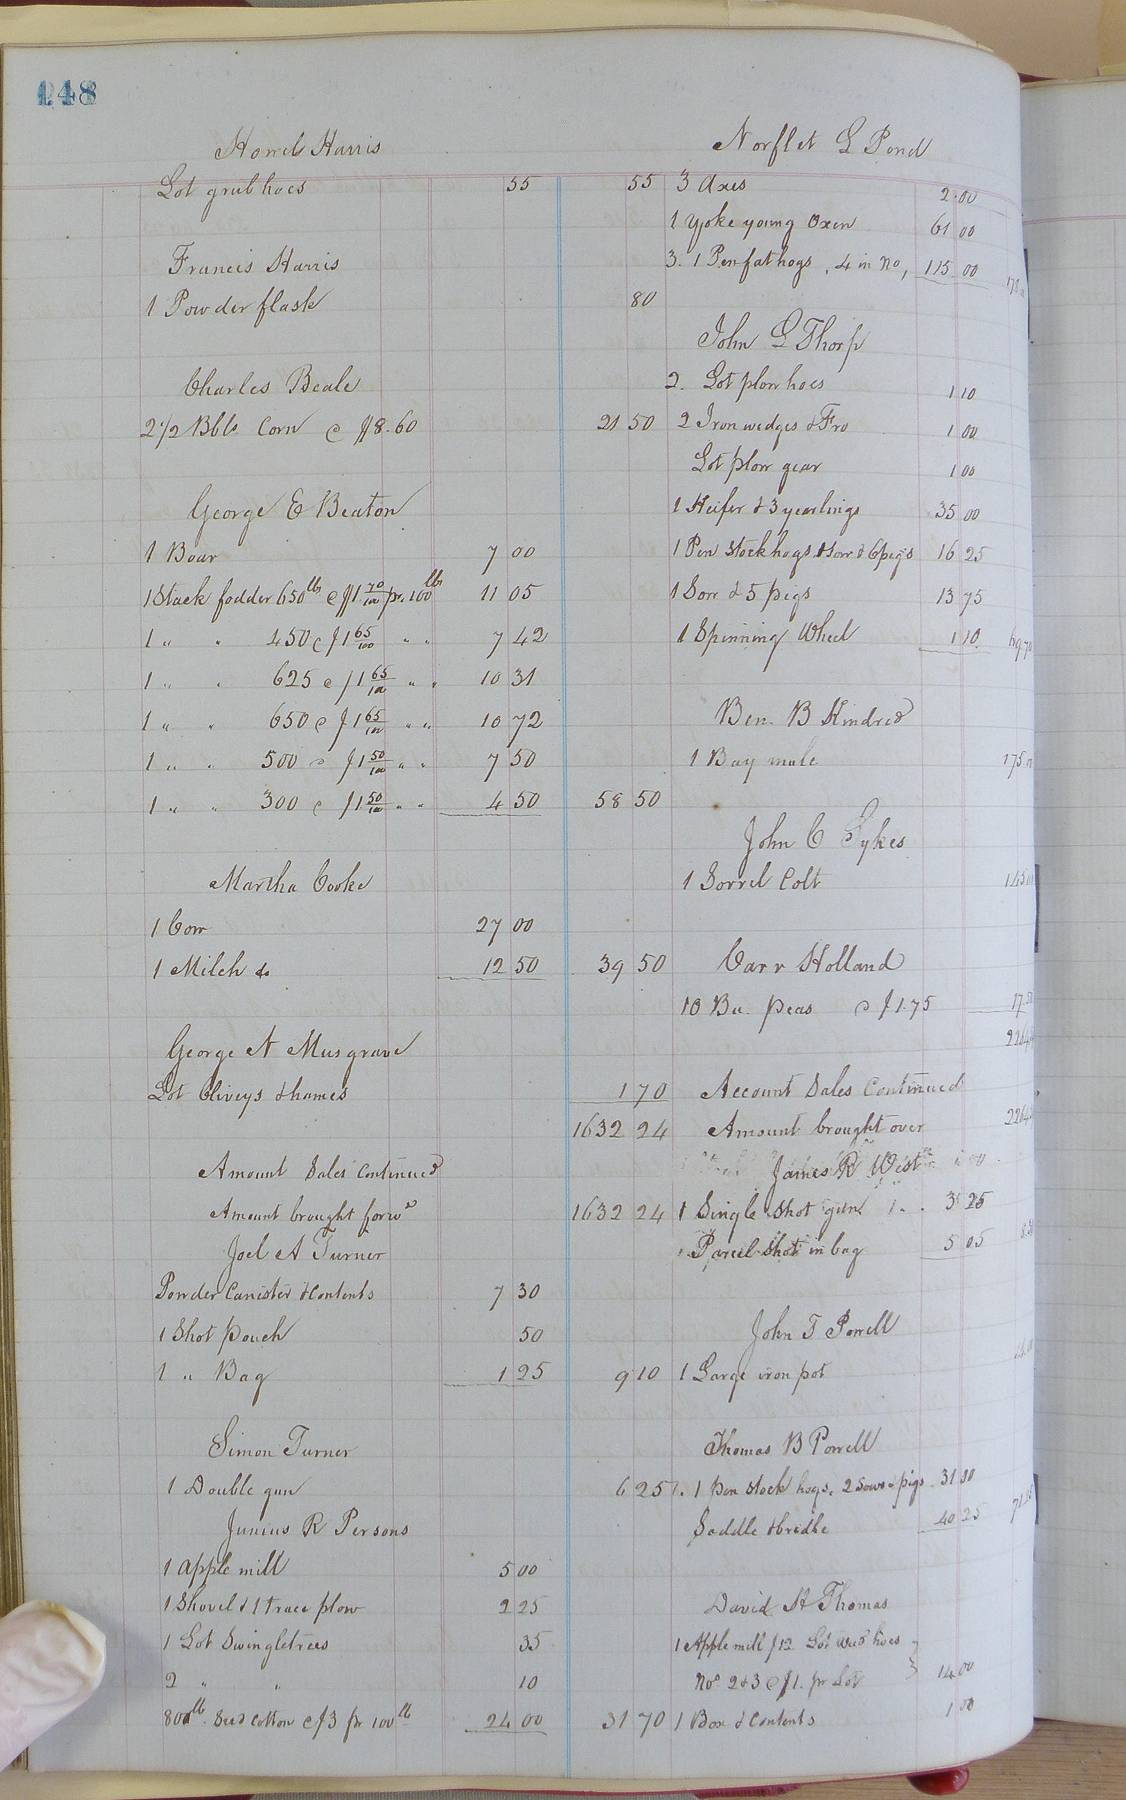 148
Howel Harris
Lot grub hoes 55 55
Francis Harris
1 Powder flask 80
Charles Beale
2 1/2 Bbls Corn @ $8.60 21 50
George E Beaton
1 Boar 7 00
1 Stack fodder 650 lbs @ $1 70/100 pr. 100 lbs 11 05
1 " " 450 @ $1 65/100 " " 7 42
1 " " 625 @ $1 65/100 " " 10 31
1 " " 650 @ $1 65/100 " " 10 72
1 " " 500 @ $1 50/100 " " 7 50
1 " " 300 @ $1 50/100 " " 4 50 58 50
Martha Cooke
1 Cow 27 00
1 Milch do 12 50 39 50
George N Musgrave
Lot Cliveys & hames 1 70
1632 24
Amount Sales Continued
Amount brought forwd 1632 24
Joel A Turner
Powder Canister & Contents 7 30
1 Shot Pouch 50
1 " Bag 1 25 9 10
Simon Turner
1 Double gun 6 25
Junius R Persons
1 Apple mill 5 00
1 Shovel & 1 trace plow 2 25
1 Lot Swingletrees 35
2 " " 10
800 lb. Seed Cotton @ $3 pr 100 lb 24 00 31 70
Norflet L Pond
3 Axes 2.00
1 Yoke young Oxen 61 00
3. 1 Pen fat hogs, 4 in No, 115 00
John L Thorp
2. Lot plow hoes 1 10
2 Iron wedges & Fro 1 00
Lot plow gear 1 00
1 Heifer & 3 yearlings 35 00
1 Pen Stock hogs 1 Sow & 6 pigs 16 25
1 Sow & 5 pigs 13 75
1 Spinning Wheel 1 10 69 70
Ben. B Kindred
1 Bay mule 175
John C Sykes
1 Sorrel Colt
Carr Holland
10 Bu. peas @ $1.75 17.50
Account Sales Continued
Amount brought over
James R West
1 Single Shot gun 3 25
1 Parcel Shot in bag 5 05
John T Powell
1 Large iron pot
Thomas B Powell
1 pen Stock hogs, 2 Sows & pigs 31 00
Saddle & bridle 40 25
David H Thomas
1 Apple mill $12 Lot weed hoes
No. 2 & 3 @ $1. pr Lot 14 00
1 Box & Contents 1 00